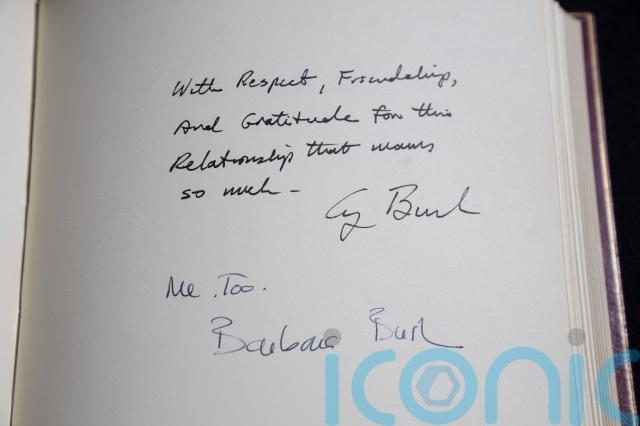 With Respect, Friendship,
And Gratitude for this
Relationship that means
so much -
G Bush
Me .Too.
Barbara Bush
iconic